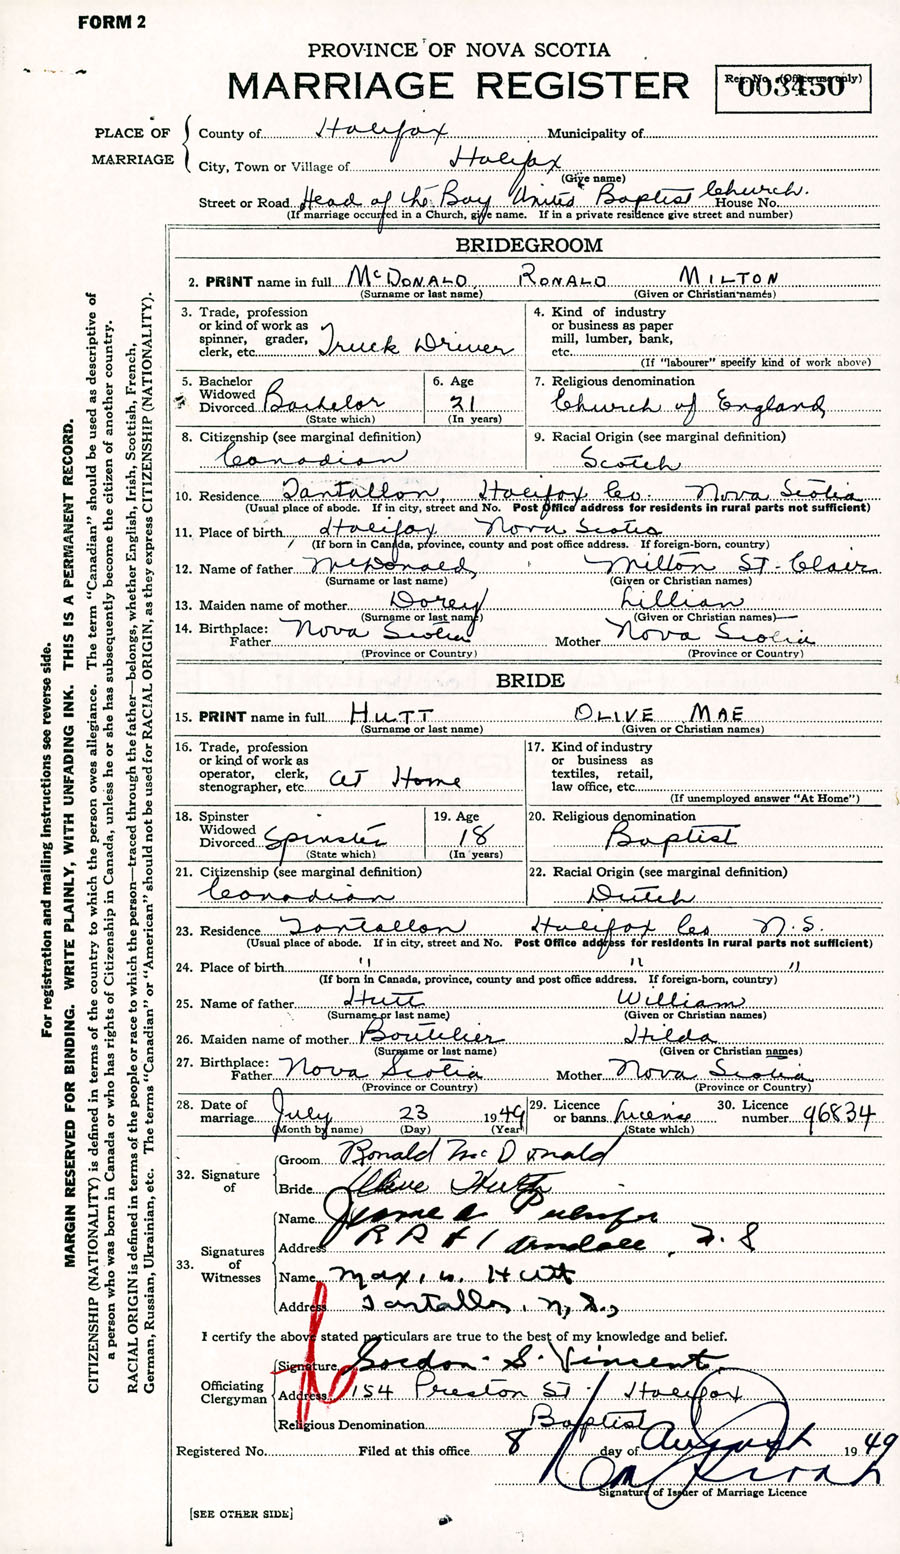 FORM 2
PROVINCE OF NOVA SCOTIA
MARRIAGE REGISTER
Reg. No. (Office use only)
003450
PLACE OF MARRIAGE
County of Halifax Municipality of
City, Town or Village of Halifax
(Give name)
Street or Road Head of the Bay United Baptist Church. House No.
(If marriage occurred in a Church, give name. If in a private residence give street and number)
BRIDEGROOM
2. PRINT name in full McDONALD RONALD MILTON
(Surname or last name) (Given or Christian names)
3. Trade, profession or kind of work as spinner, grader, clerk, etc. Truck Driver
4. Kind of industry or business as paper mill, lumber, bank, etc.
(If "labourer" specify kind of work above)
5. Bachelor Widowed Divorced Bachelor
(State which)
6. Age 21
(In years)
7. Religious denomination
Church of England
8. Citizenship (see marginal definition)
Canadian
9. Racial Origin (see marginal definition)
Scotch
10. Residence Tantallon, Halifax Co. Nova Scotia
(Usual place of abode. If in city, street and No. Post Office address for residents in rural parts not sufficient)
11. Place of birth Halifax Nova Scotia
(If born in Canada, province, county and post office address. If foreign-born, country)
12. Name of father McDonald, Milton St. Clair
(Surname or last name) (Given or Christian names)
13. Maiden name of mother Dorey Lillian
(Surname or last name) (Given or Christian names)
14. Birthplace: Father Nova Scotia Mother Nova Scotia
(Province or Country) (Province or Country)
BRIDE
15. PRINT name in full HUTT OLIVE MAE
(Surname or last name) (Given or Christian names)
16. Trade, profession or kind of work as operator, clerk, stenographer, etc. at Home
17. Kind of industry or business as textiles, retail, law office, etc.
(If unemployed answer "At Home")
18. Spinster Widowed Divorced Spinster
(State which)
19. Age 18
(In years)
20. Religious denomination
Baptist
21. Citizenship (see marginal definition)
Canadian
22. Racial Origin (see marginal definition)
Dutch
23. Residence Tantallon Halifax Co N.S.
(Usual place of abode. If in city, street and No. Post Office address for residents in rural parts not sufficient)
24. Place of birth " " "
(If born in Canada, province, county and post office address. If foreign-born, country)
25. Name of father Hutt William
(Surname or last name) (Given or Christian names)
26. Maiden name of mother Boutilier Hilda
(Surname or last name) (Given or Christian names)
27. Birthplace: Father Nova Scotia Mother Nova Scotia
(Province or Country) (Province or Country)
28. Date of marriage July 23 1949
(Month by name) (Day) (Year)
29. Licence or banns License
(State which)
30. Licence number 96834
32. Signature of
Groom Ronald McDonald
Bride Olive Hutt
33. Signatures of Witnesses
Name
Address R R # 1 N. S
Name Max, W. Hutt
Address Tantallon, N.S.,
I certify the above stated particulars are true to the best of my knowledge and belief.
Officiating Clergyman
Signature Gordon S. Vincent
Address 154 Preston St. Halifax
Religious Denomination Baptist
Registered No. Filed at this office 8 day of August 1949
Signature of Issuer of Marriage Licence
[SEE OTHER SIDE]
For registration and mailing instructions see reverse side.
MARGIN RESERVED FOR BINDING. WRITE PLAINLY, WITH UNFADING INK. THIS IS A PERMANENT RECORD.
CITIZENSHIP (NATIONALITY) is defined in terms of the country to which the person owes allegiance. The term "Canadian" should be used as descriptive of
a person who was born in Canada or who has rights of Citizenship in Canada, unless he or she has subsequently become the citizen of another country.
RACIAL ORIGIN is defined in terms of the people or race to which the person—traced through the father—belongs, whether English, Irish, Scottish, French,
German, Russian, Ukrainian, etc. The terms "Canadian" or "American" should not be used for RACIAL ORIGIN, as they express CITIZENSHIP (NATIONALITY).